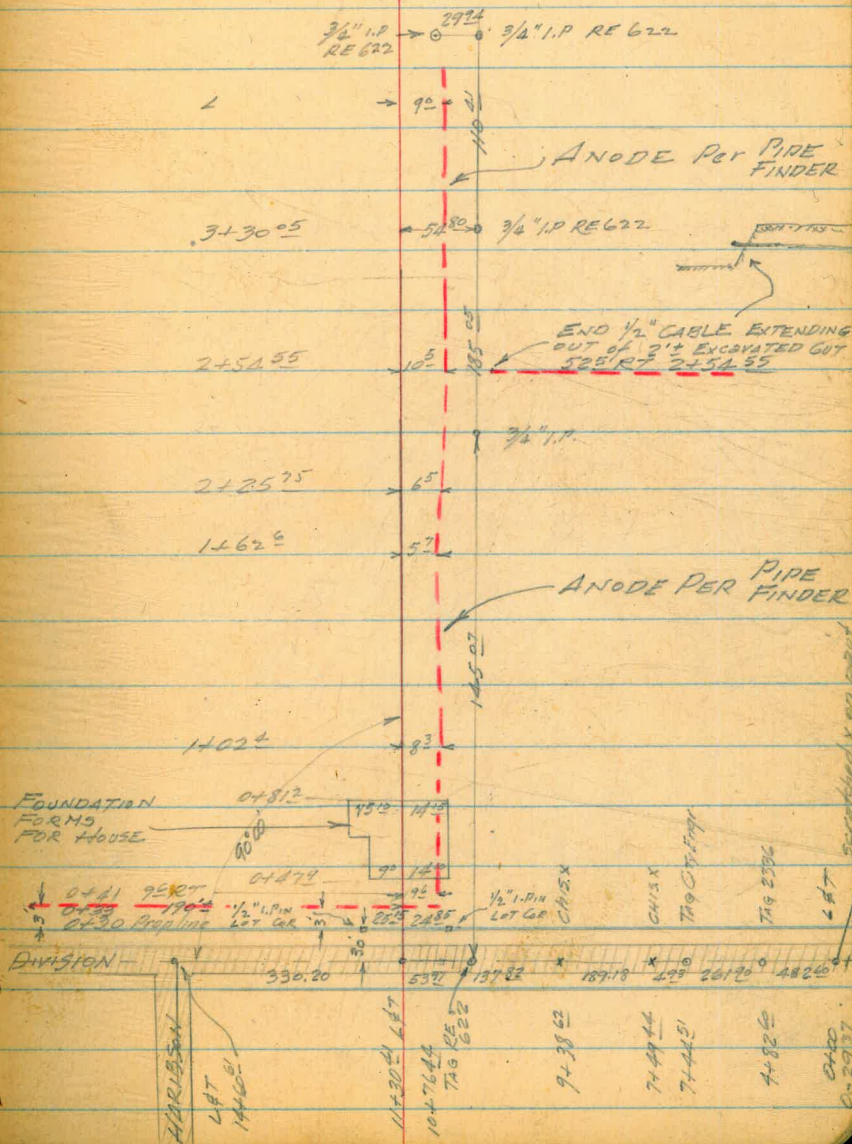 29 94
3/4" I.P
RE 622
3/4" I.P RE 622
9 0
110 41
ANODE Per PIPE
FINDER
3+30 05
54 80
3/4" I.P RE 622
185 05
END 1/2" CABLE EXTENDING
OUT of 2'± EXCAVATED CUT
52 5 RT 2+54 55
2+54 55
10 5
3/4" I.P.
2+25 75
6 5
1+62 6
5 7
ANODE PER PIPE
FINDER
145 07
1+02 4
8 3
FOUNDATION
FORMS
FOR HOUSE
0+81 2
14 15
90° 00'
0+47 9
9 0
14 0
0+41 9 6 RT
9 6
190 4
0+30 Prop line
3'
1/2" I.PIN
LOT COR
3'
25 15
24 85
1/2" I.PIN
LOT COR
30'
CHIS.X
CHIS.X
TAG CITY Engr
TAG 2336
L&T
DIVISION
330.20
53 97
137 82
189.18
4 93
261 90
482 60
HARBISON
L&T
14+60 61
11+30 41 L&T
10+76 44
TAG RE
622
9+38 62
7+49 44
7+44 51
4+82 60
0+00